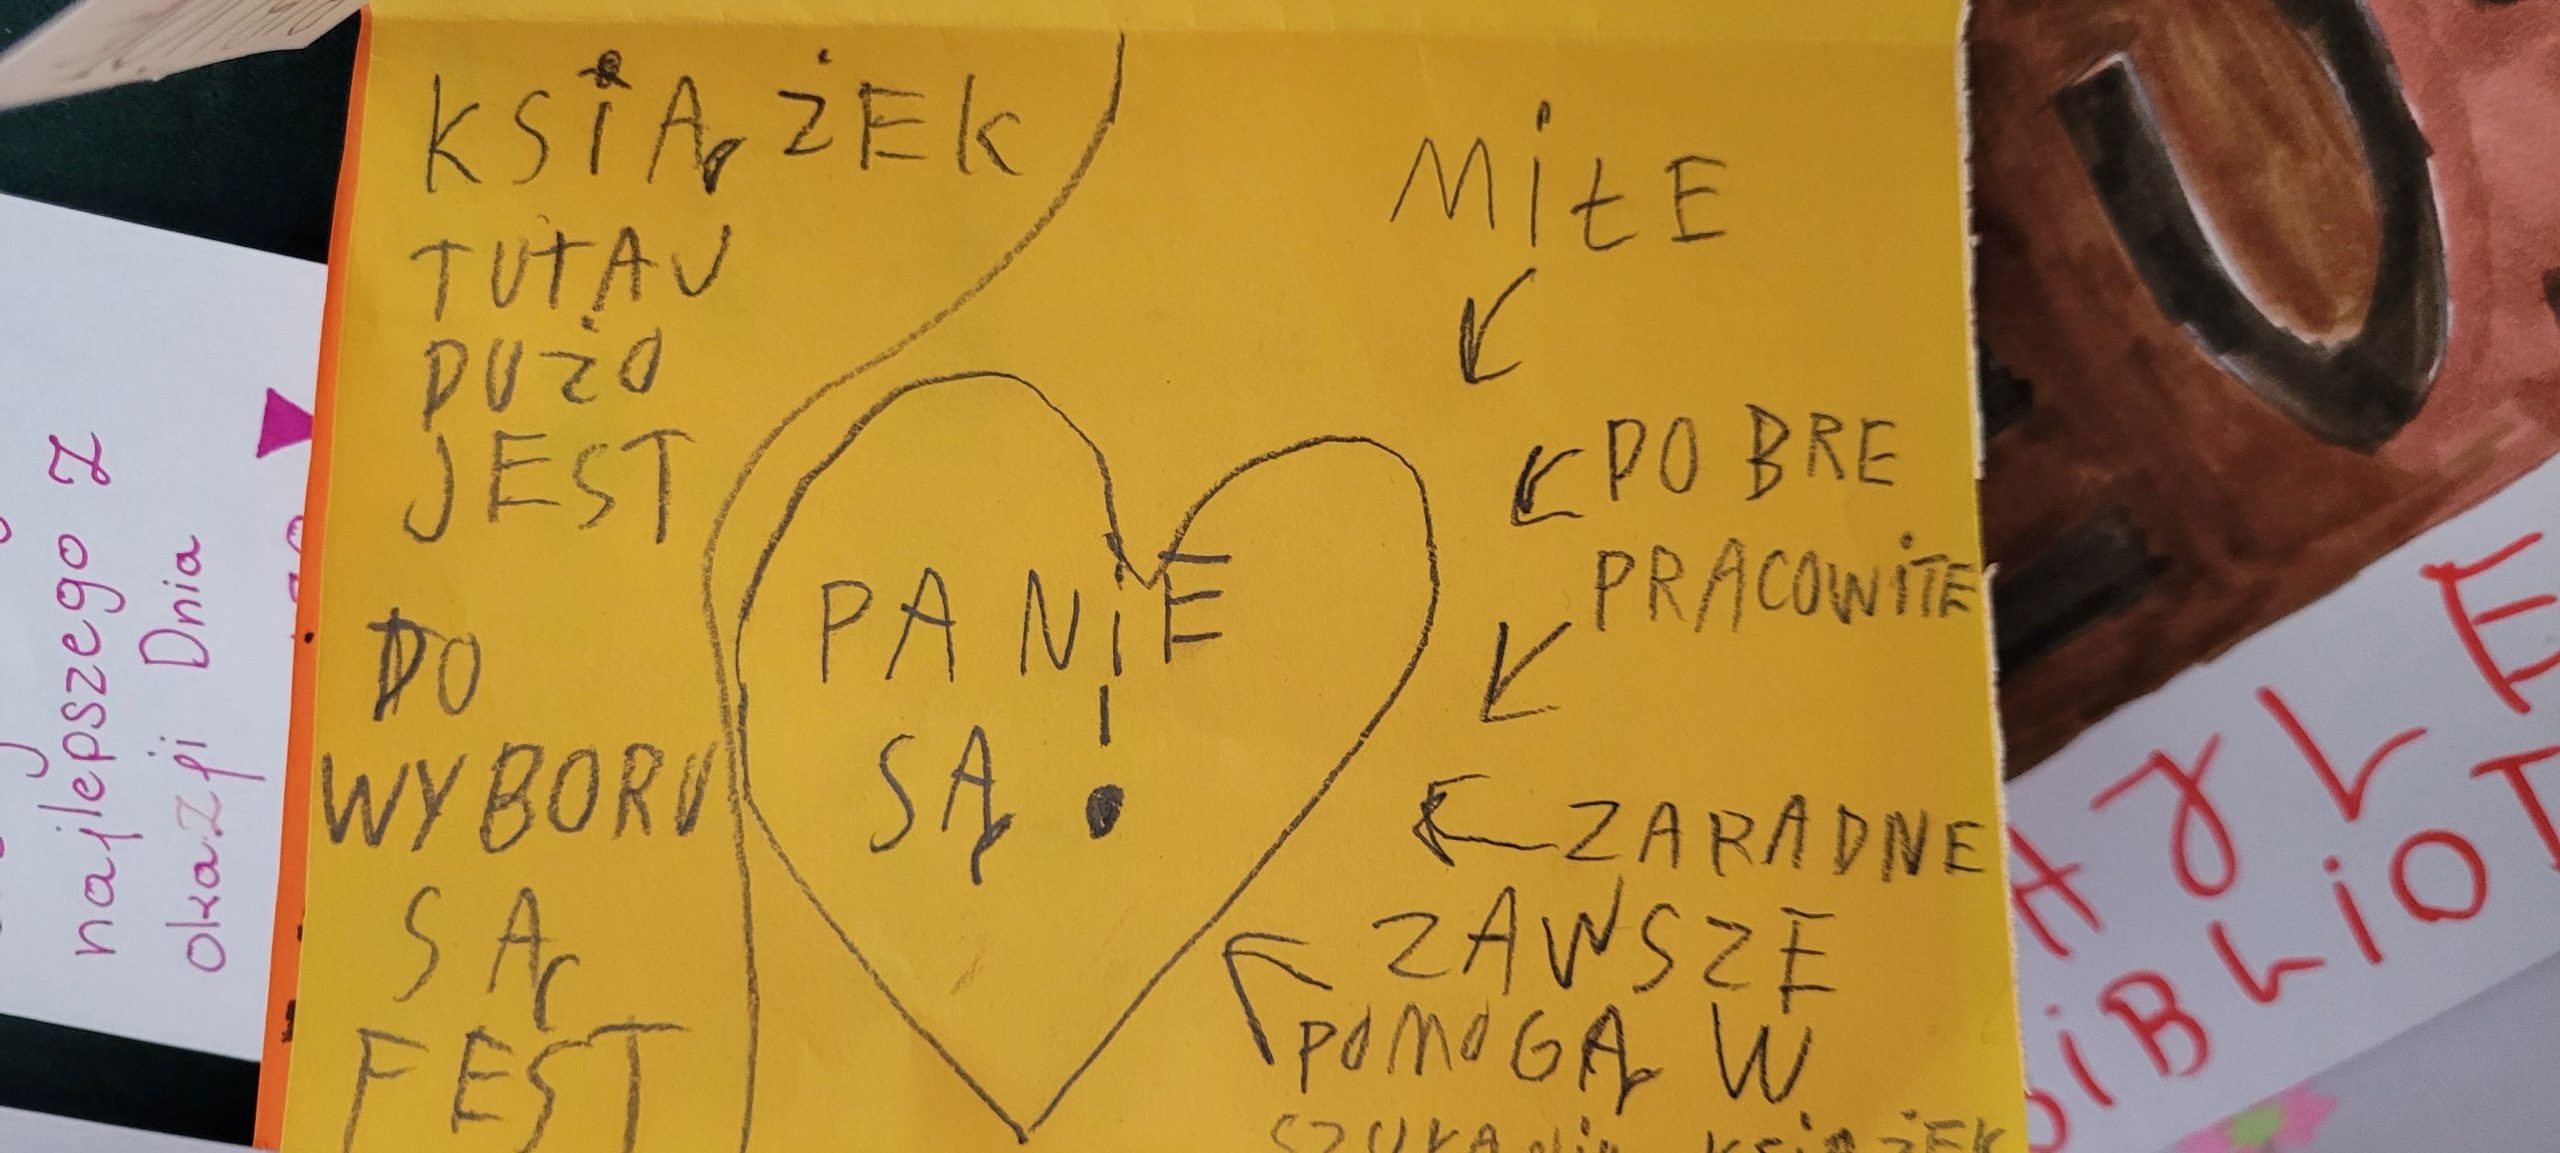 KSIĄŻEK
TUTAJ
DUŻO
JEST
DO
WYBORU
SĄ
FEST
PANIE
SĄ !
MIŁE
DOBRE
PRACOWITE
ZARADNE
ZAWSZE
POMOGĄ W
SZUKANIU KSIĄŻEK
najlepszego z
okazji Dnia
E
BIBLIOT